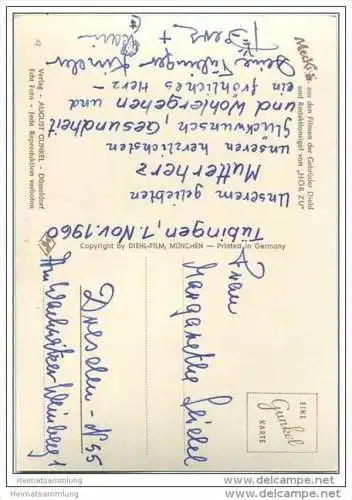 Mecki
aus den Filmen der Gebrüder Diehl
und Redaktionsigel von „HÖR ZU"
Tübingen, 1. Nov. 1960
Unserem geliebten
Mutterherz
unseren herzlichsten
Glückwunsch, Gesundheit
und Wohlergehen und
ein fröhliches Herz –
Deine Tübinger Kinder
42
Verlag - AUGUST GUNKEL - Düsseldorf
Echt Foto - Jede Reproduktion verboten
Copyright by DIEHL-FILM, MÜNCHEN — Printed in Germany
EINE
Gunkel
KARTE
Frau
Margarethe
Dresden - N 55
Am Wachwitzer Weinberg 1
Heimatsammlung
Heimatsammlung
Heimatsammlung
Heimatsammlung
www.delcampe.net